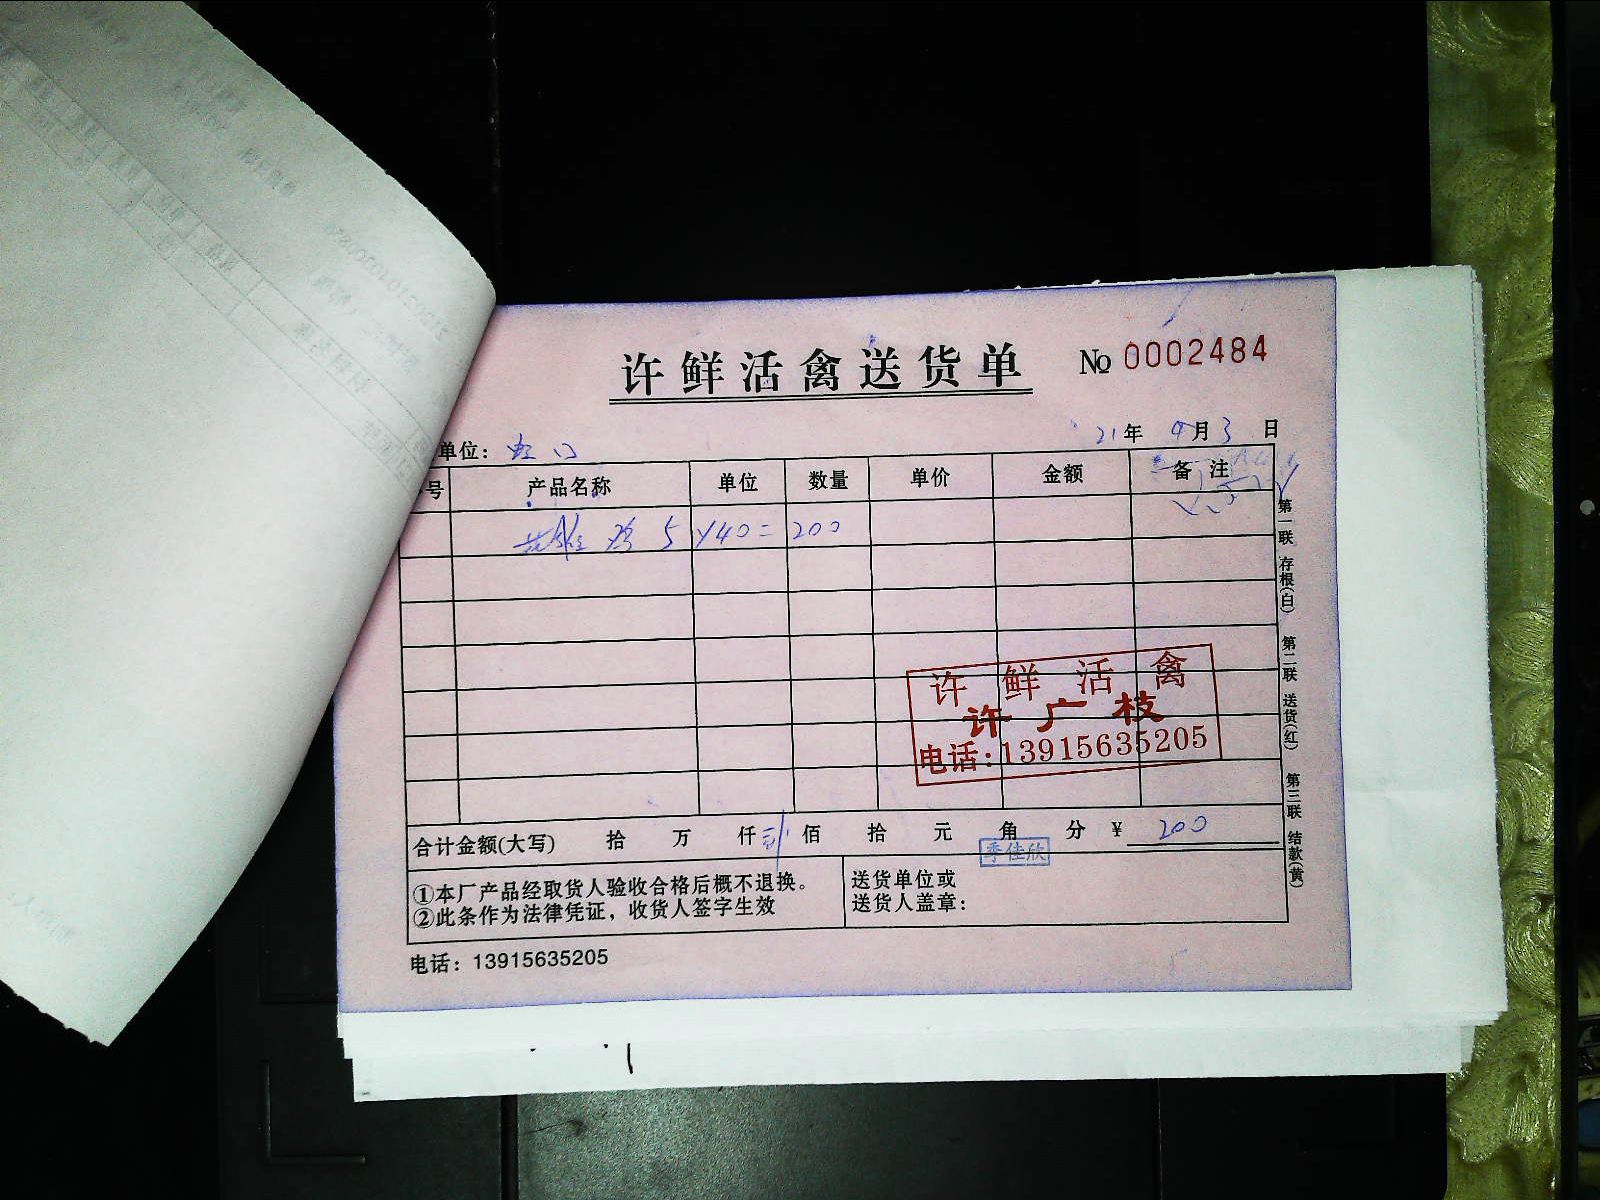 许鲜活禽送货单 № 0002484
单位: 虹口 21年 9月3日
号 产品名称 单位 数量 单价 金额 备注
鸡 5 ×40= 200
许鲜活禽
许广枝
电话:13915635205
合计金额(大写) 拾 万 仟 贰佰 拾 元 角 分 ¥ 200
季佳欣
①本厂产品经取货人验收合格后概不退换。
②此条作为法律凭证，收货人签字生效
送货单位或
送货人盖章:
电话: 13915635205
第一联 存根(白) 第二联 送货(红) 第三联 结款(黄)